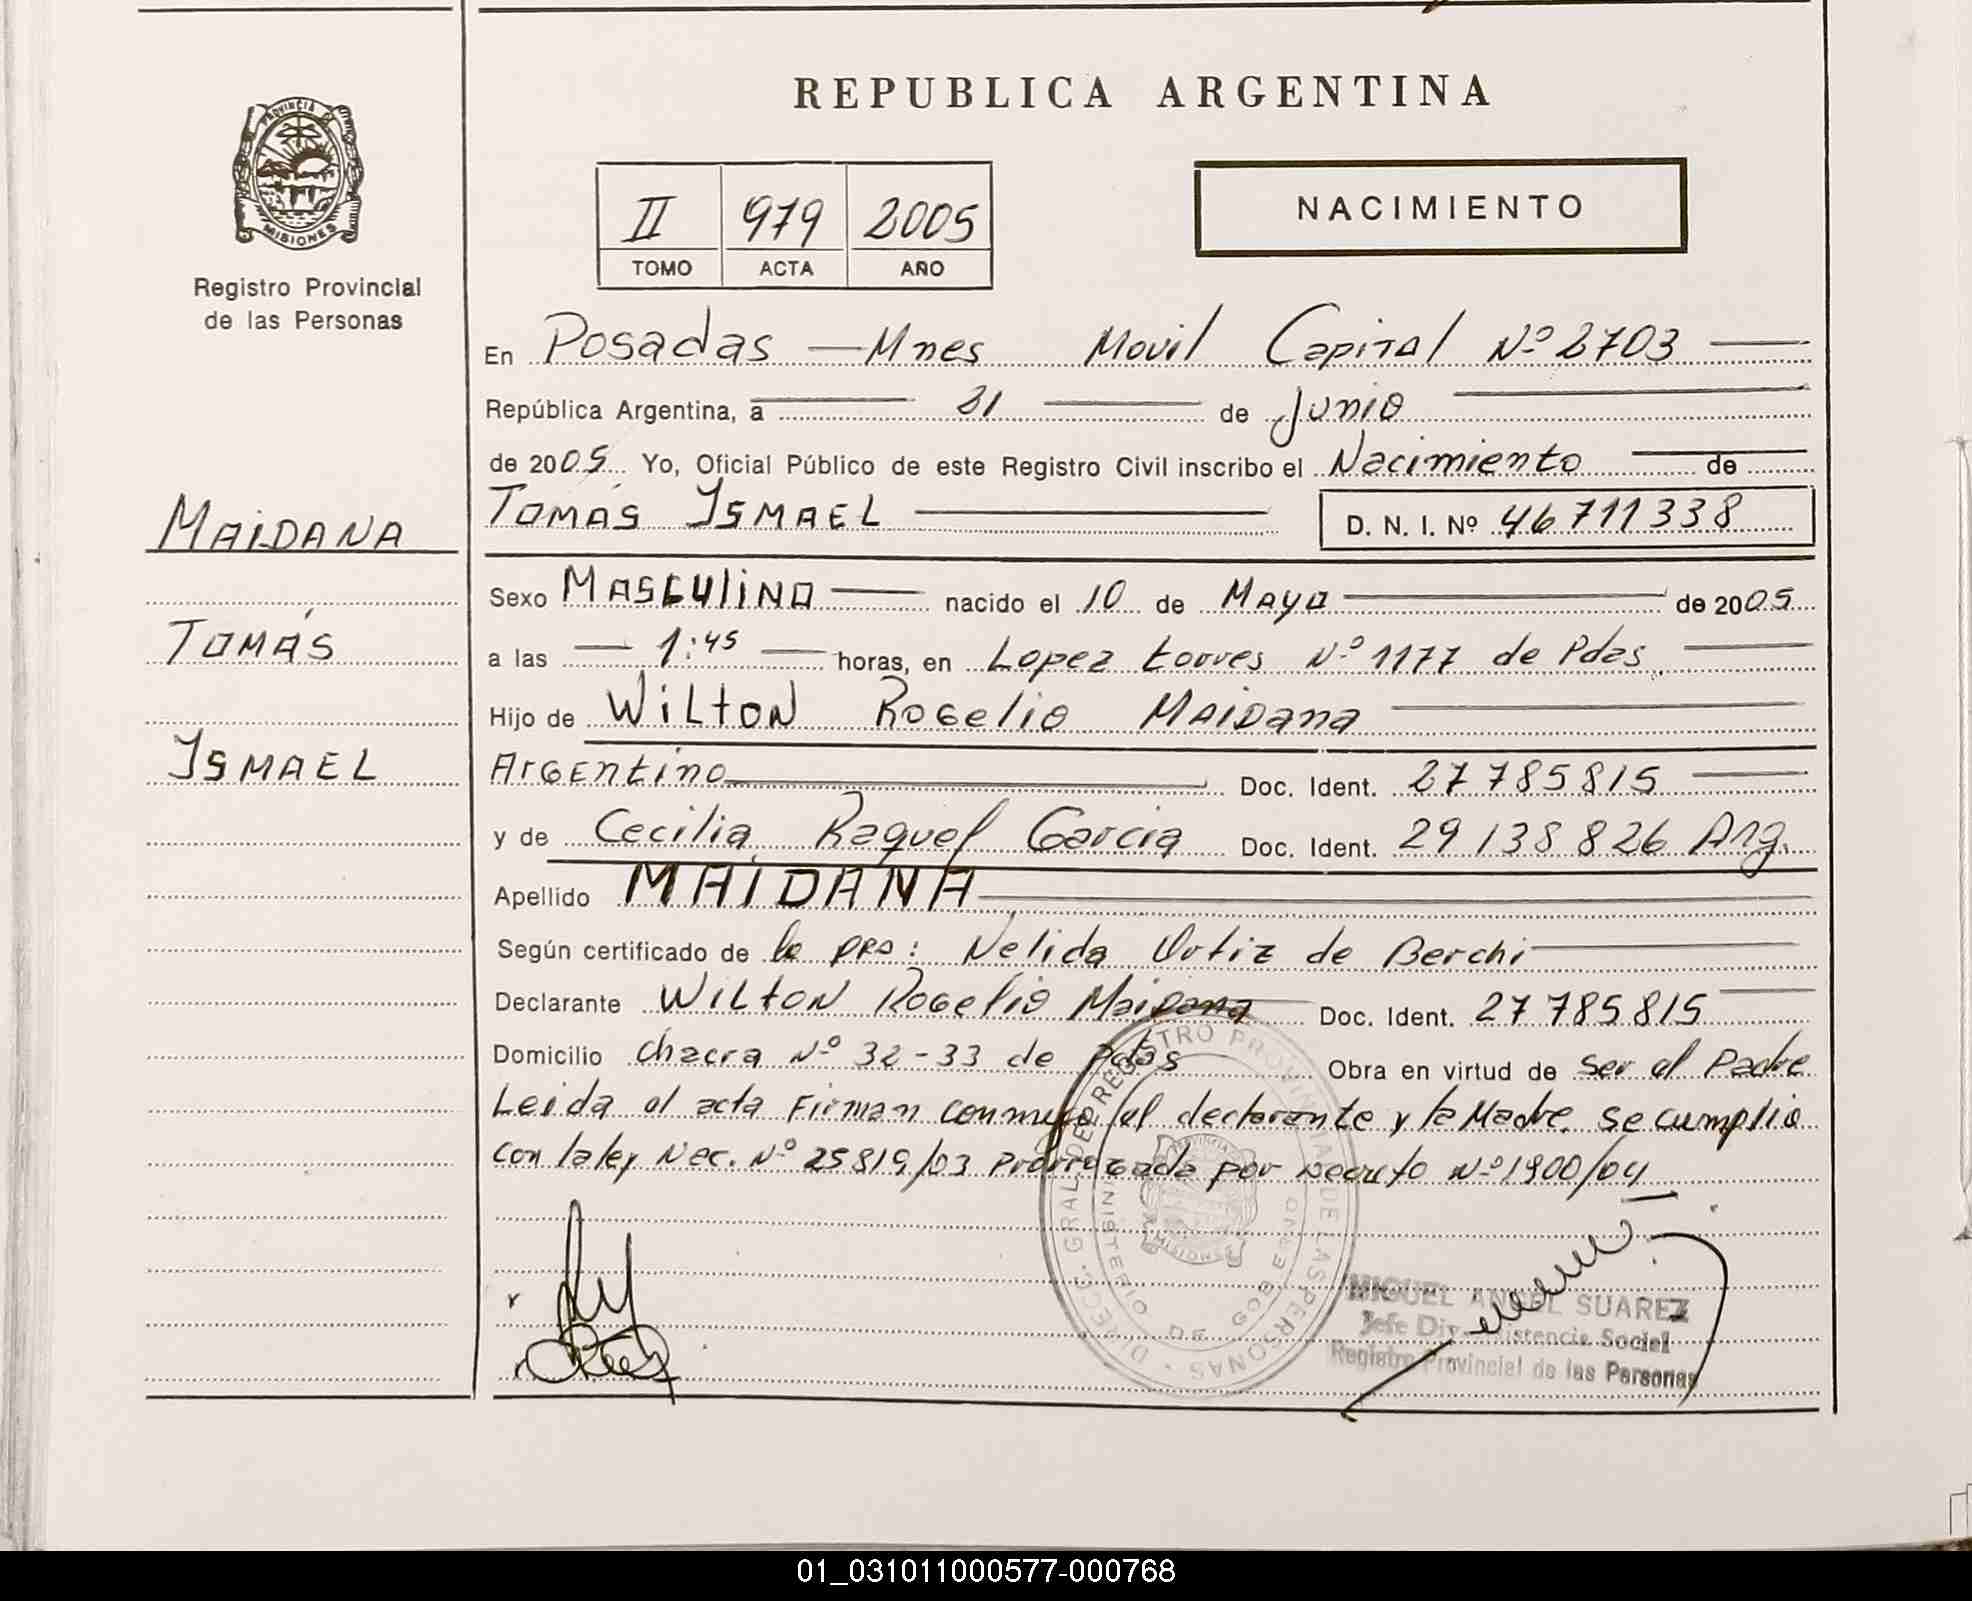 REPUBLICA ARGENTINA
PROVINCIA DE
MISIONES
Registro Provincial
de las Personas
II 979 2005
TOMO ACTA AÑO
NACIMIENTO
En Posadas — Mnes Movil Capital Nº 2703
República Argentina, a 21 de Junio
de 2005 Yo, Oficial Público de este Registro Civil inscribo el Nacimiento de
TOMÁS ISMAEL D. N. I. Nº 46711338
MAIDANA
TOMÁS
ISMAEL
Sexo MASCULINO nacido el 10 de MAYO de 2005
a las 1:45 horas, en Lopez torres Nº 1177 de Pdas
Hijo de WILTON Rogelio MAIDANA
ARGENtino Doc. Ident. 27785815
y de Cecilia Raquel Garcia Doc. Ident. 29138826 Arg.
Apellido MAIDANA
Según certificado de la PRO: Nelida Ortiz de Berchi
Declarante WILTON ROGELIO Maidana Doc. Ident. 27785815
Domicilio Chacra Nº 32-33 de Pdas Obra en virtud de Ser el Padre
Leida el acta Firman conmigo el declarante y la Madre. Se cumplio
con la ley Nac. Nº 25819/03 Prorrogada por Decreto Nº 1900/04
DIRECC. GRAL. DEL REGISTRO PROVINCIAL DE LAS PERSONAS
MINISTERIO DE GOBIERNO
PROVINCIA
MISIONES
MIGUEL ANGEL SUAREZ
Jefe Div. Asistencia Social
Registro Provincial de las Personas
01_031011000577-000768